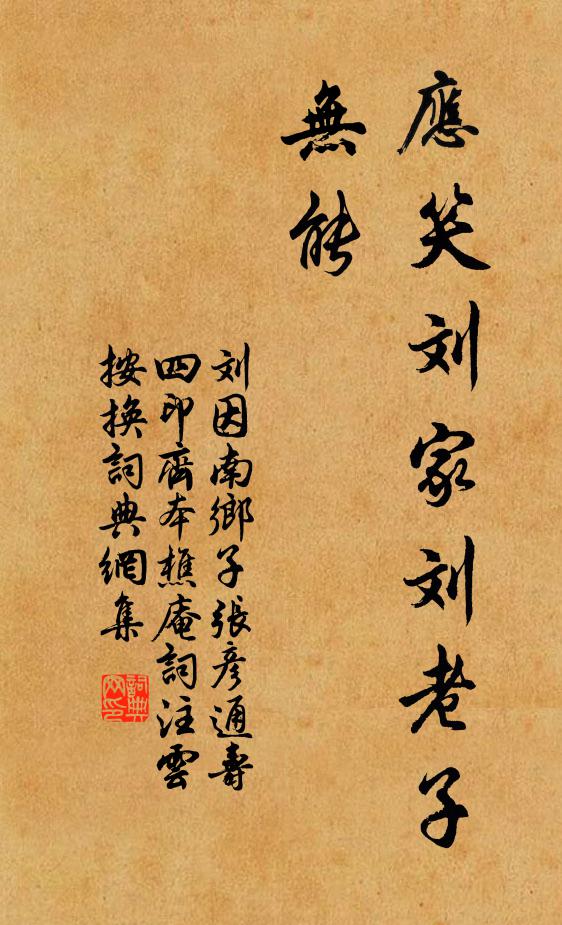 應笑刘家刘老子
無能
刘因南鄉子張彥通壽
四印齋本樵庵詞注雲
按換詞典網集
詞典
网印